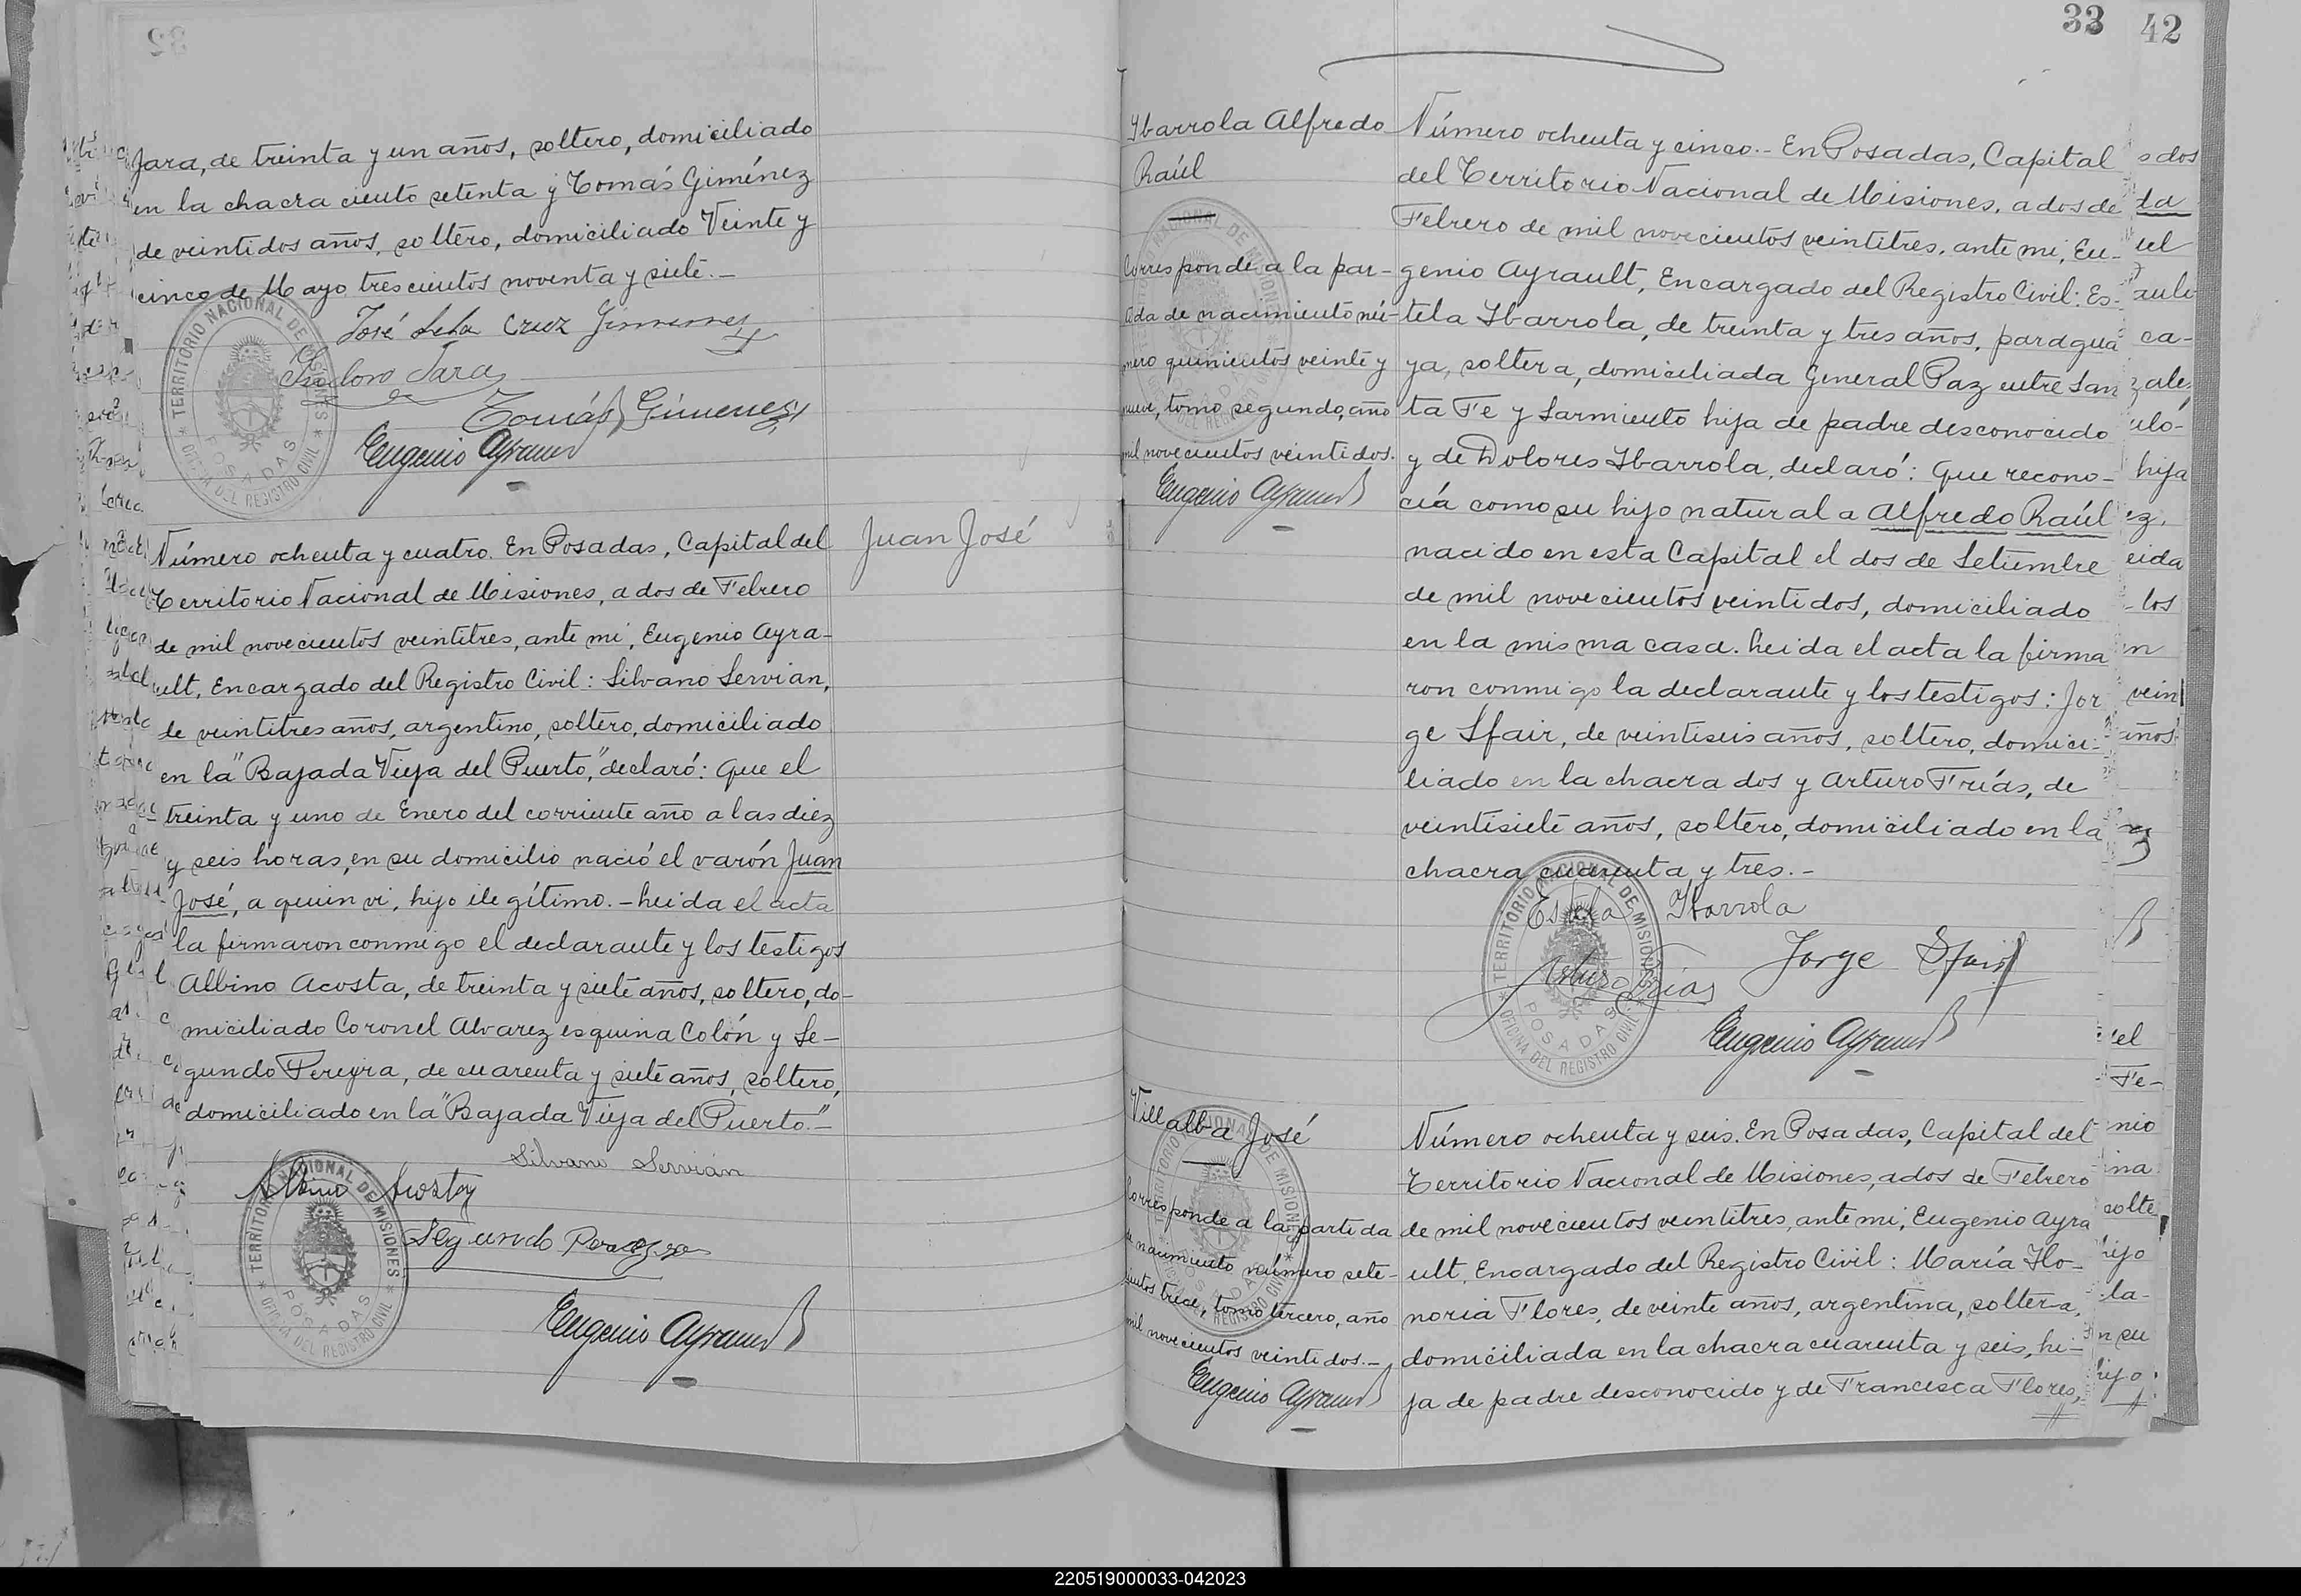 Jara, de treinta y un años, soltero, domiciliado
en la chacra ciento setenta y Tomás Giménez
de veintidos años, soltero, domiciliado Veinte y
cinco de Mayo trescientos noventa y siete.—
José Cruz Gimenez
Isidoro Jara
Tomás Gimenez
Eugenio Ayrault
TERRITORIO NACIONAL DE MISIONES
POSADAS
OFICINA DEL REGISTRO CIVIL
Número ochenta y cuatro. En Posadas, Capital del
Territorio Nacional de Misiones, a dos de Febrero
de mil novecientos veintitres, ante mi, Eugenio Ayra-
ult, Encargado del Registro Civil: Silvano Servian,
de veintitres años, argentino, soltero, domiciliado
en la "Bajada Vieja del Puerto," declaró: Que el
treinta y uno de Enero del corriente año a las diez
y seis horas, en su domicilio nació el varón Juan
José, a quien vi, hijo ilegítimo.— Leida el acta
la firmaron conmigo el declarante y los testigos
Albino Acosta, de treinta y siete años, soltero, do-
miciliado Coronel Alvarez esquina Colón y Se-
gundo Pereyra, de cuarenta y siete años, soltero,
domiciliado en la "Bajada Vieja del Puerto."—
Silvano Servián
Albino Acosta
Segundo Pereyra
Eugenio Ayrault
TERRITORIO NACIONAL DE MISIONES
POSADAS
OFICINA DEL REGISTRO CIVIL
Juan José
33 42
Ybarrola Alfredo
Raúl
Corresponde a la par-
tida de nacimiento nú-
mero quinientos veinte y
nueve, tomo segundo, año
mil novecientos veintidos.
Eugenio Ayrault
Número ochenta y cinco.- En Posadas, Capital
del Territorio Nacional de Misiones, a dos de
Febrero de mil novecientos veintitres, ante mi, Eu-
genio Ayrault, Encargado del Registro Civil: Es-
tela Ybarrola, de treinta y tres años, paragua
ya, soltera, domiciliada General Paz entre San
ta Fe y Sarmiento hija de padre desconocido
y de Dolores Ybarrola, declaró: Que recono-
cía como su hijo natural a Alfredo Raúl
nacido en esta Capital el dos de Setiembre
de mil novecientos veintidos, domiciliado
en la misma casa. Leida el acta la firma
ron conmigo la declarante y los testigos: Jor
ge Sfair, de veintiseis años, soltero, domici-
liado en la chacra dos y Arturo Frías, de
veintisiete años, soltero, domiciliado en la
chacra cuarenta y tres.-
Estela Ybarrola
Jorge Sfair
Arturo Frías
Eugenio Ayrault
TERRITORIO NACIONAL DE MISIONES
POSADAS
OFICINA DEL REGISTRO CIVIL
Villalba José
Corresponde a la partida
de nacimiento número sete-
cientos trece, tomo tercero, año
mil novecientos veintidos.—
Eugenio Ayrault
Número ochenta y seis. En Posadas, Capital del
Territorio Nacional de Misiones, a dos de Febrero
de mil novecientos veintitres, ante mi, Eugenio Ayra
ult, Encargado del Registro Civil: María Ho-
noria Flores, de veinte años, argentina, soltera,
domiciliada en la chacra cuarenta y seis, hi-
ja de padre desconocido y de Francisca Flores,
220519000033-042023